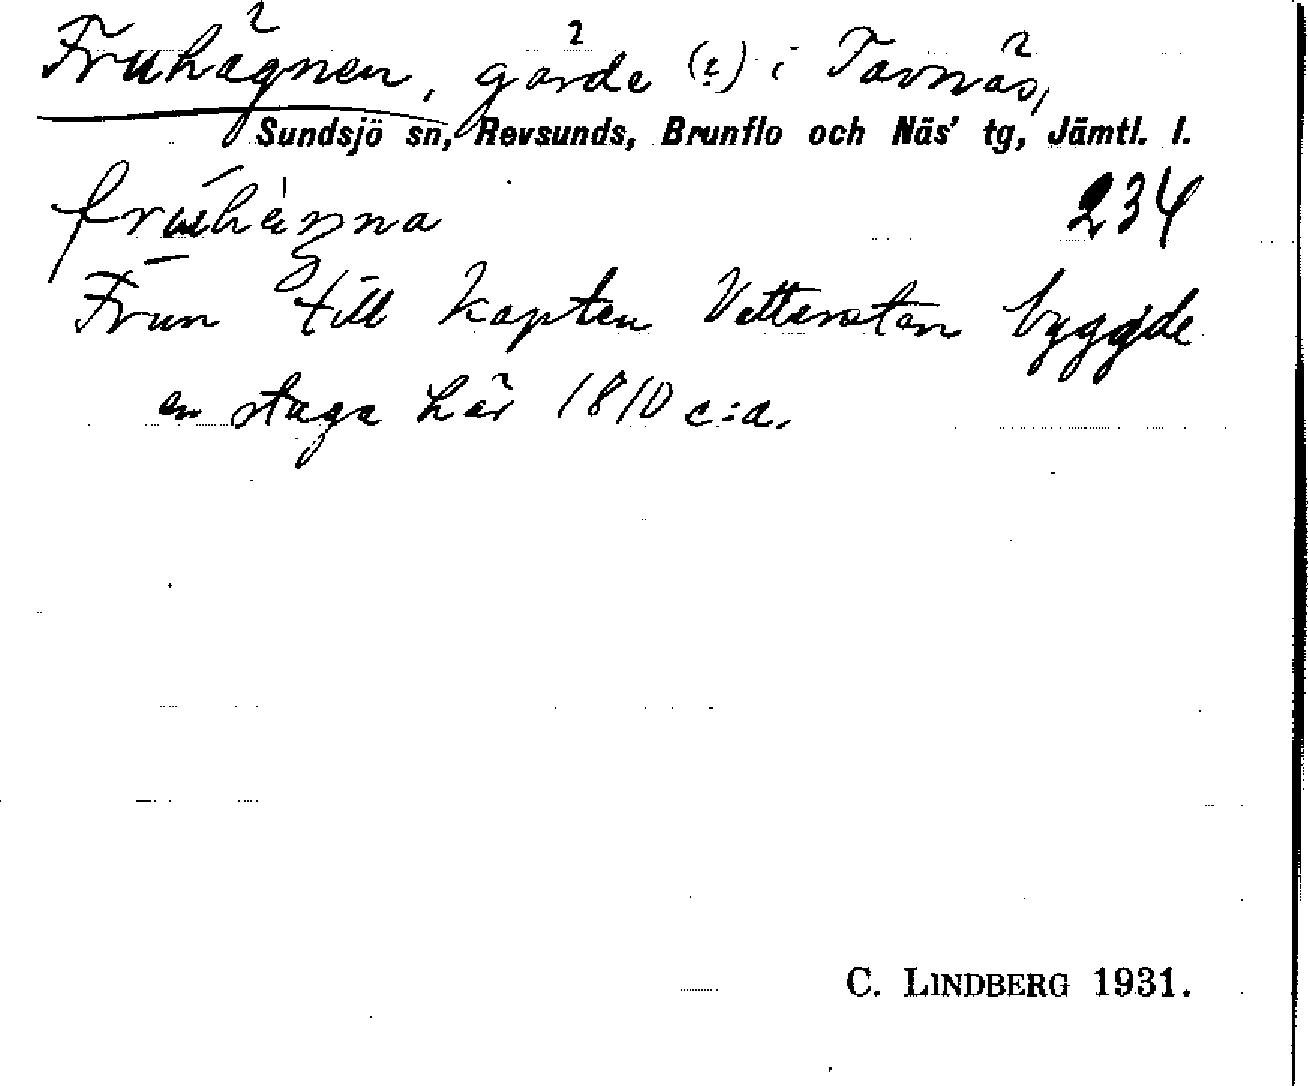 Fruhägnen, gärde (?) i Tavnäs,
Sundsjö sn, Revsunds, Brunflo och Näs' tg, Jämtl. l.
234
Frun till kapten byggde
en stuga här 1810 c:a.
C. LINDBERG 1931.